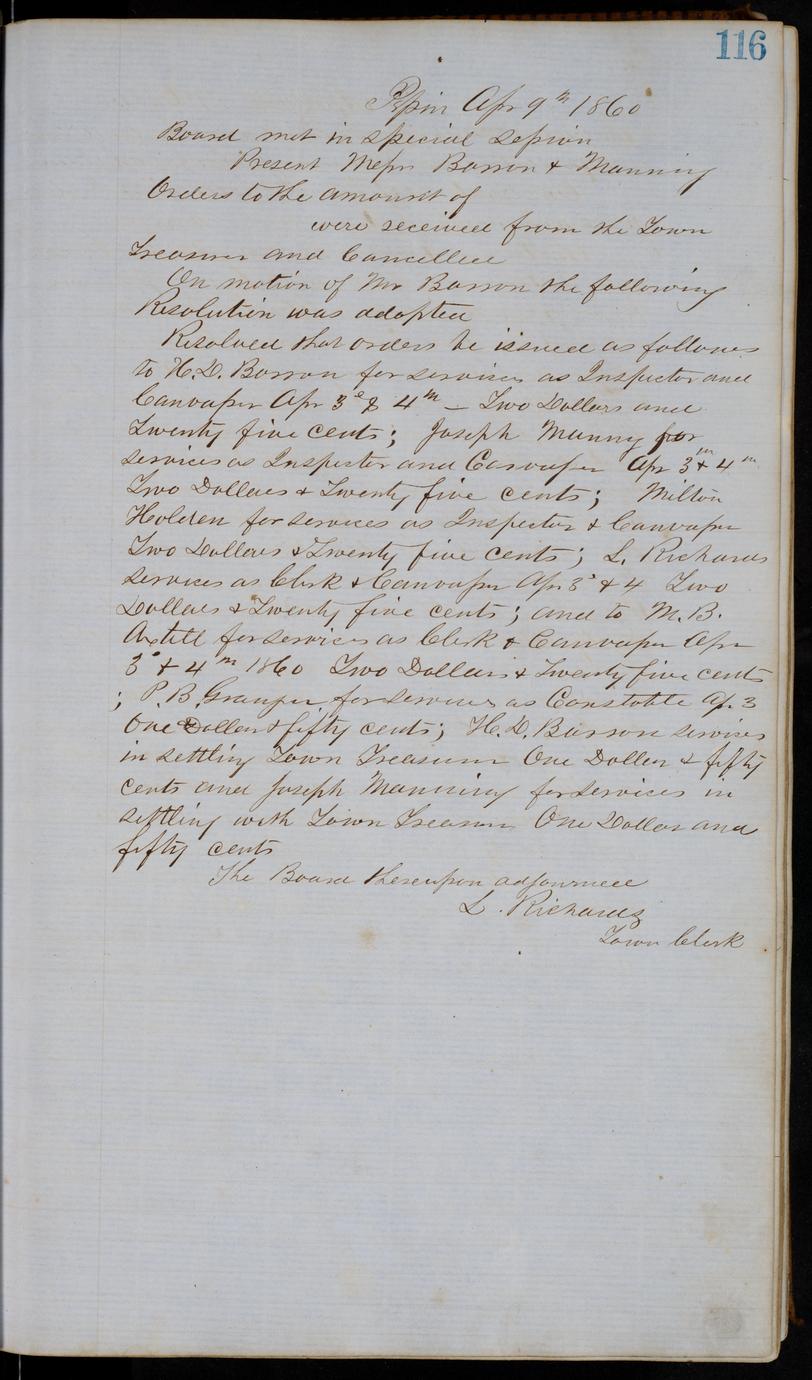 116
Pepin Apr 9th 1860
Board met in special session
Present Messrs Barron & Manning
Orders to the amount of
were received from the Town
Treasurer and Cancelled
On motion of Mr Barron the following
Resolution was adopted
Resolved that orders be issued as follows
to H.D. Barron for services as Inspector and
Canvasser Apr 3d & 4th – Two Dollars and
Twenty five cents; Joseph Manny for
services as Inspector and Canvasser Apr 3 & 4th
Two Dollars & Twenty five cents; Milton
Holden for services as Inspector & Canvasser
Two Dollars & Twenty five cents; L. Richards
services as Clerk & Canvasser Apr 3d & 4 Two
Dollars & Twenty five cents; and to M.B.
Axtell for services as Clerk & Canvasser Apr
3d & 4th 1860 Two Dollars & Twenty five cents
; P.B. Granger for services as Constable Ap. 3
One Dollar & fifty cents; H.D. Barron services
in settling Town Treasurer One Dollar & fifty
cents and Joseph Manning for services in
settling with Town Treasurer One Dollar and
fifty cents
The Board thereupon adjourned
L. Richards
Town Clerk